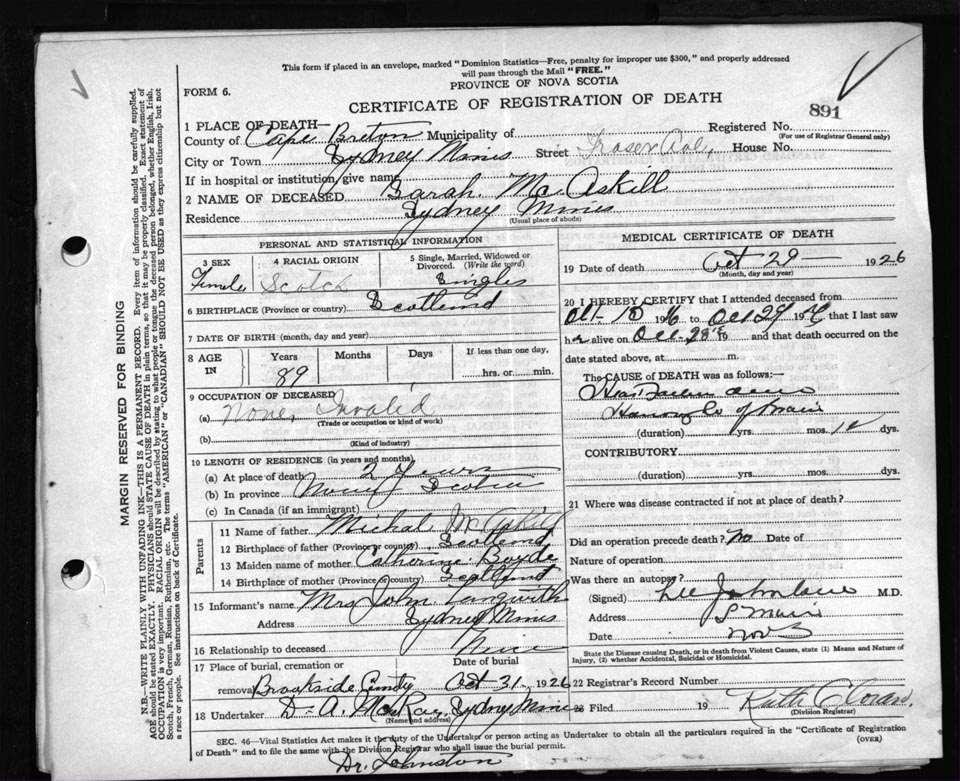 This form if placed in an envelope, marked "Dominion Statistics—Free, penalty for improper use $300," and properly addressed
will pass through the Mail "FREE."
PROVINCE OF NOVA SCOTIA
FORM 6.
CERTIFICATE OF REGISTRATION OF DEATH
891
1 PLACE OF DEATH—
County of Cape Breton Municipality of Registered No.
(For use of Registrar General only)
City or Town Sydney Mines Street Fraser Ave, House No.
If in hospital or institution, give name
2 NAME OF DECEASED Sarah McAskill
Residence Sydney Mines
(Usual place of abode)
PERSONAL AND STATISTICAL INFORMATION
3 SEX Female
4 RACIAL ORIGIN Scotch
5 Single, Married, Widowed or Divorced. (Write the word) Single
6 BIRTHPLACE (Province or country) Scotland
7 DATE OF BIRTH (month, day and year)
8 AGE IN Years 89 Months Days If less than one day, hrs. or min.
9 OCCUPATION OF DECEASED
(a) None Invalid
(Trade or occupation or kind of work)
(b)
(Kind of industry)
10 LENGTH OF RESIDENCE (in years and months)
(a) At place of death 2 Years
(b) In province Nova Scotia
(c) In Canada (if an immigrant)
Parents
11 Name of father Michal McAskill
12 Birthplace of father (Province or country) Scotland
13 Maiden name of mother Catherine
14 Birthplace of mother (Province or country) Scotland
15 Informant's name Mrs John
Address Sydney Mines
16 Relationship to deceased Niece
17 Place of burial, cremation or removal Brookside Date of burial Oct 31, 1926
18 Undertaker D. A. MacRae, Sydney Mines
(Name and address)
MEDICAL CERTIFICATE OF DEATH
19 Date of death Oct 29 1926
(Month, day and year)
20 I HEREBY CERTIFY that I attended deceased from
to Oct 29 that I last saw
her alive on Oct. 28th 19 and that death occurred on the
date stated above, at m.
The CAUSE OF DEATH was as follows:—
(duration) yrs. mos. dys.
CONTRIBUTORY
(duration) yrs. mos. dys.
21 Where was disease contracted if not at place of death?
Did an operation precede death? No Date of
Nature of operation
Was there an autopsy?
(Signed) M.D.
Address
Date Nov
State the Disease causing Death, or in death from Violent Causes, state (1) Means and Nature of
Injury, (2) whether Accidental, Suicidal or Homicidal.
22 Registrar's Record Number
23 Filed 19 Ruth
(Division Registrar)
SEC. 46—Vital Statistics Act makes it the duty of the Undertaker or person acting as Undertaker to obtain all the particulars required in the "Certificate of Registration
of Death" and to file the same with the Division Registrar who shall issue the burial permit. (OVER)
Dr. Johnston
MARGIN RESERVED FOR BINDING
N.B.—WRITE PLAINLY WITH UNFADING INK—THIS IS A PERMANENT RECORD. Every item of information should be carefully supplied.
AGE should be stated EXACTLY. PHYSICIANS should STATE CAUSE OF DEATH in plain terms, so that it may be properly classified. Exact statement of
OCCUPATION is very important. RACIAL ORIGIN will be described by stating to what people or tongue the deceased person belonged, whether English, Irish,
Scotch, French, German, Russian, Ruthenian, etc. The terms "AMERICAN" or "CANADIAN" SHOULD NOT BE USED as they express citizenship but not
a race or people. See instructions on back of Certificate.